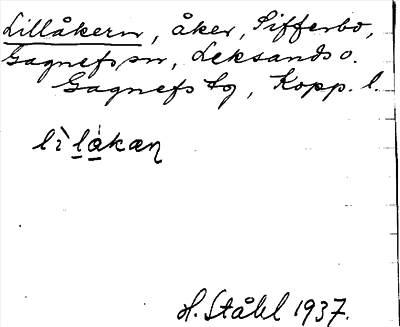 Lillåkern, åker, Sifferbo,
Gagnefs sn, Leksands o.
Gagnefs tg, Kopp. l.
lì`låkæɳ
H. Ståhl 1937.